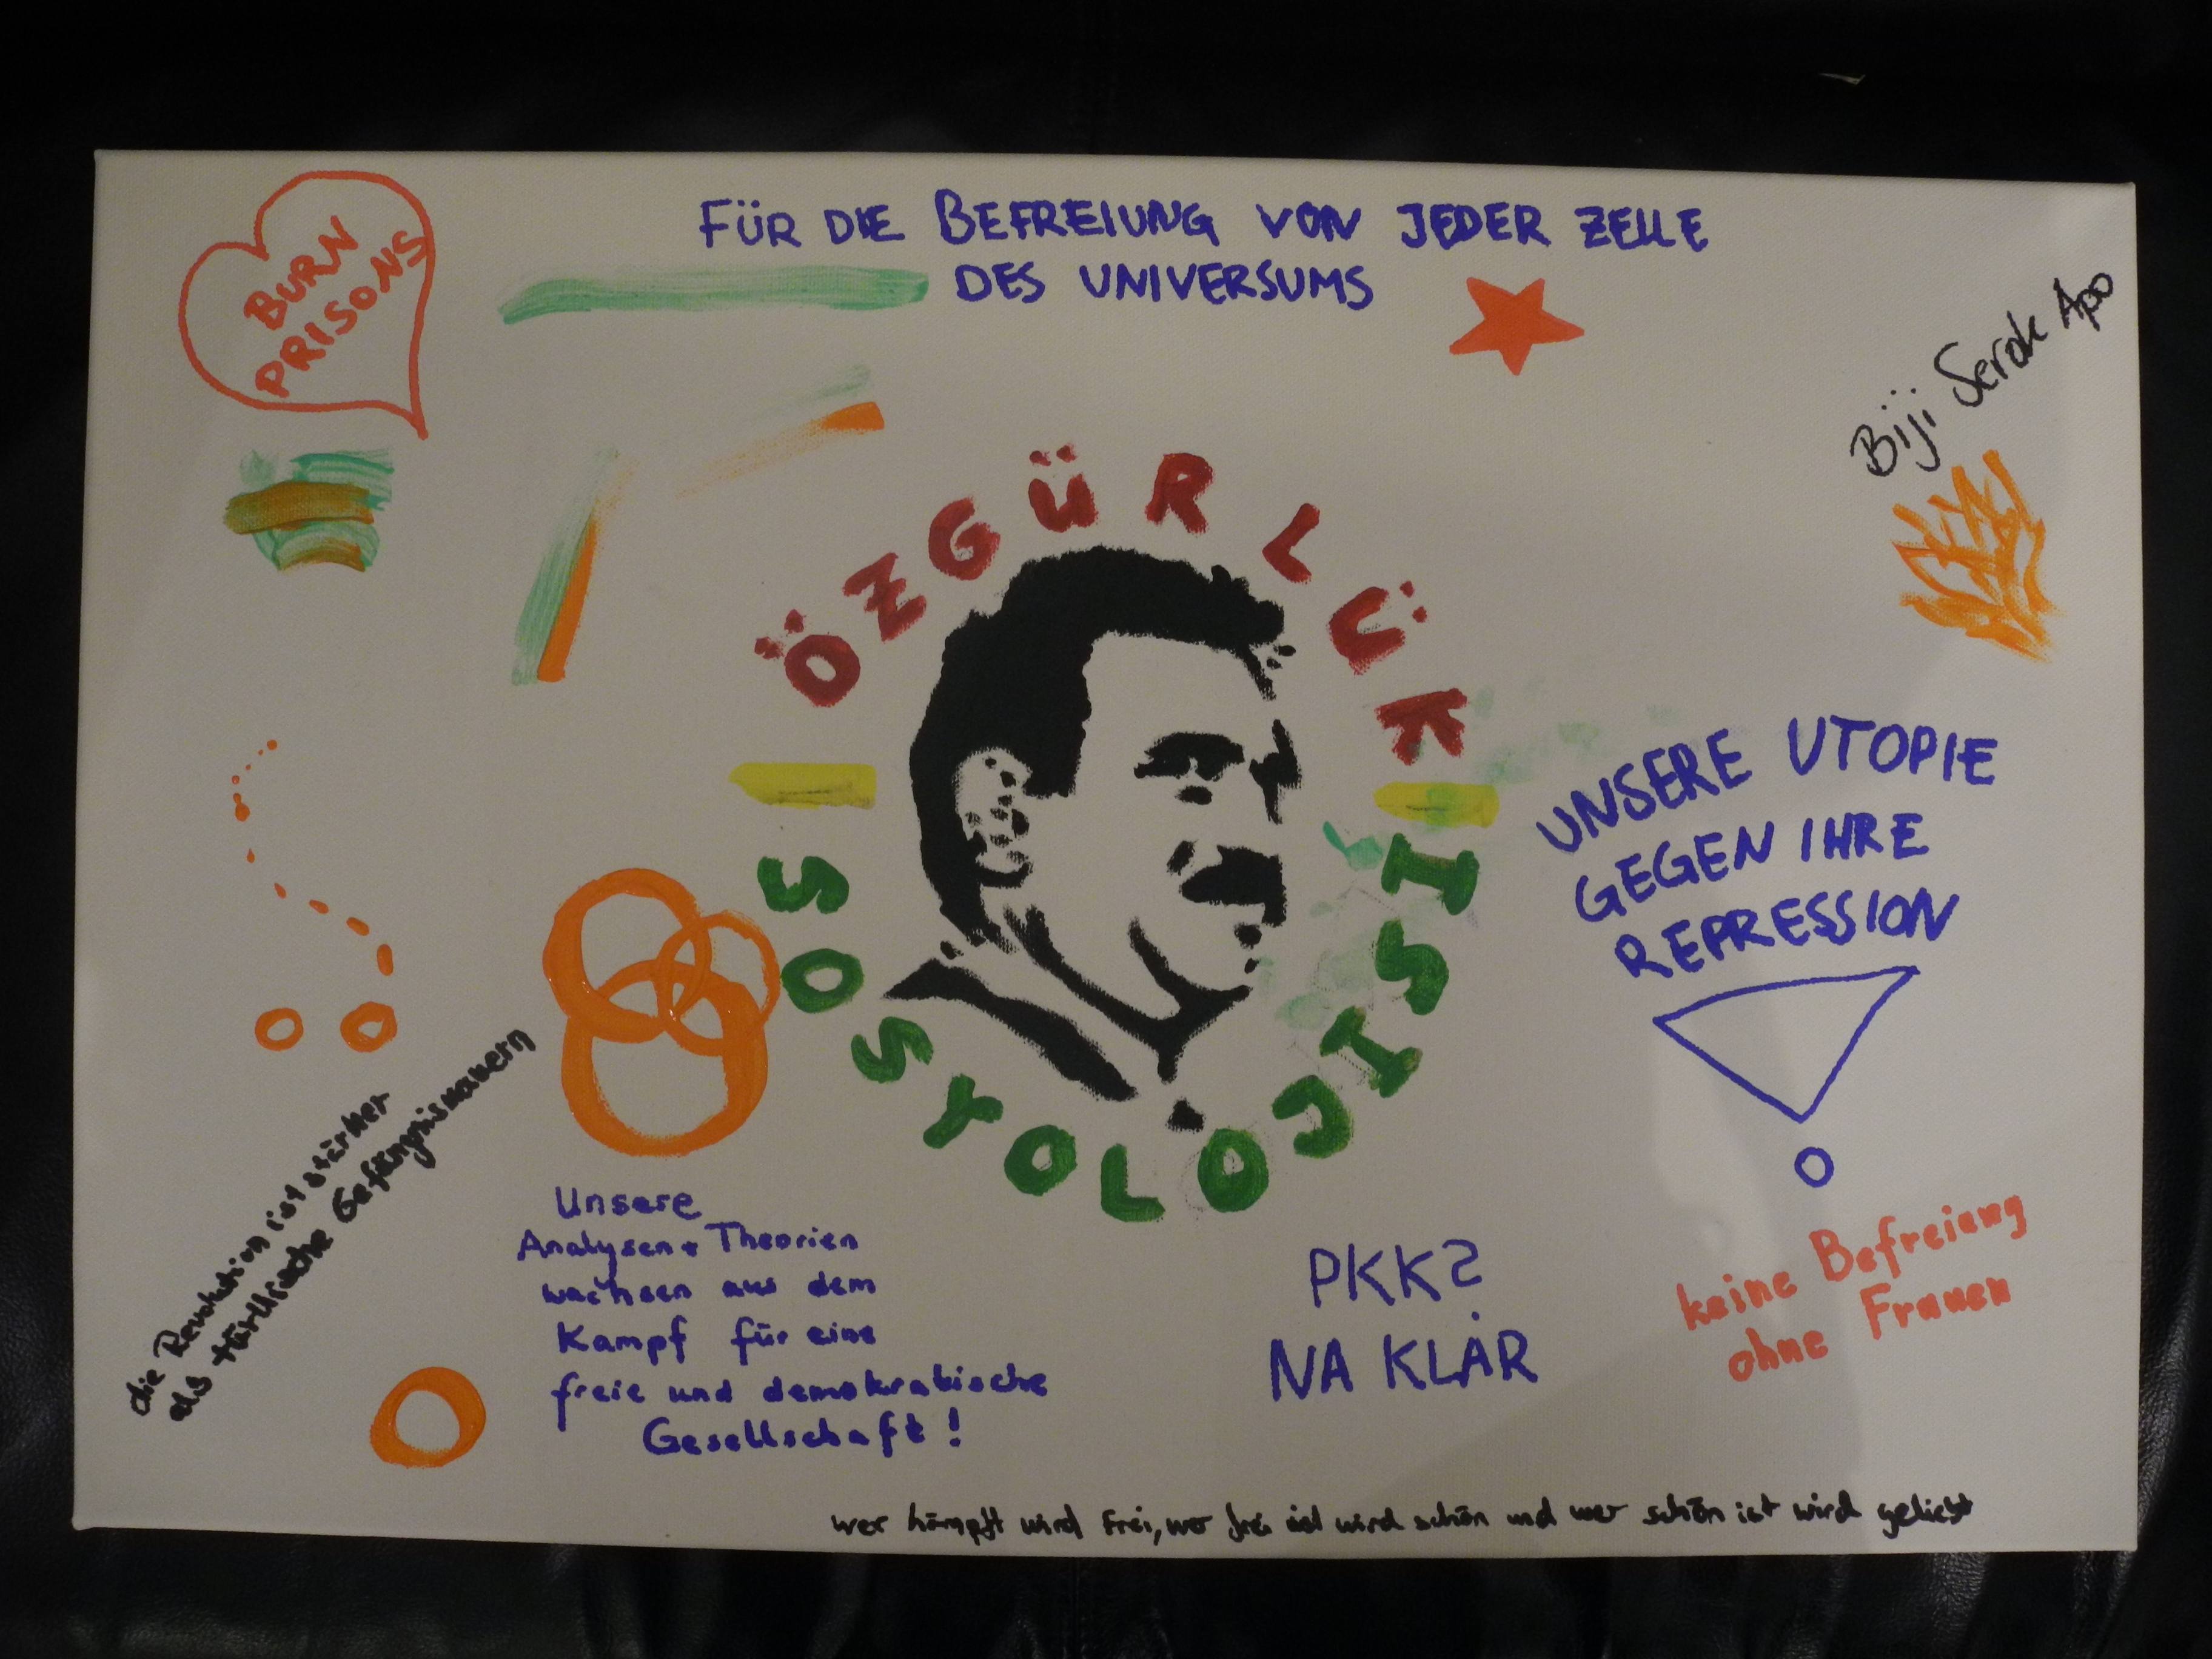 BURN
PRISONS
FÜR DIE BEFREIUNG VON JEDER ZELLE
DES UNIVERSUMS
Biji Serok Apo
ÖZGÜRLÜK
SOSYOLOJISI
UNSERE UTOPIE
GEGEN IHRE
REPRESSION
die Revolution ist stärker
als türkische Gefängnismauern
Unsere
Analysen + Theorien
wachsen aus dem
Kampf für eine
freie und demokratische
Gesellschaft!
PKK?
NA KLAR
keine Befreiung
ohne Frauen
wer kämpft wird frei, wer frei ist wird schön und wer schön ist wird geliebt